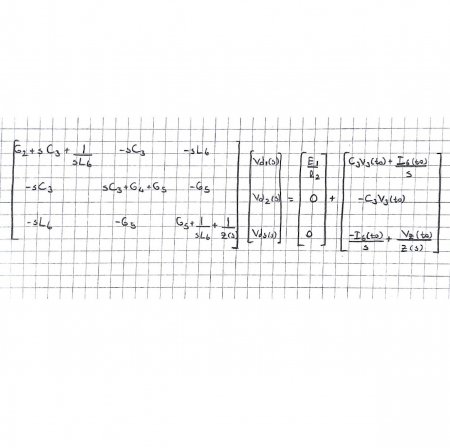 G2 + sC3 + 1/sL6   -sC3   -sL6
-sC3   sC3+G4+G5   -G5
-sL6   -G5   G5+1/sL6+1/Z(s)
Vd1(s)
Vd2(s)
Vd3(s)
=
E1/R2
0
0
+
C3V3(to) + I6(to)/s
-C3V3(to)
-I6(to)/s + Vz(to)/Z(s)